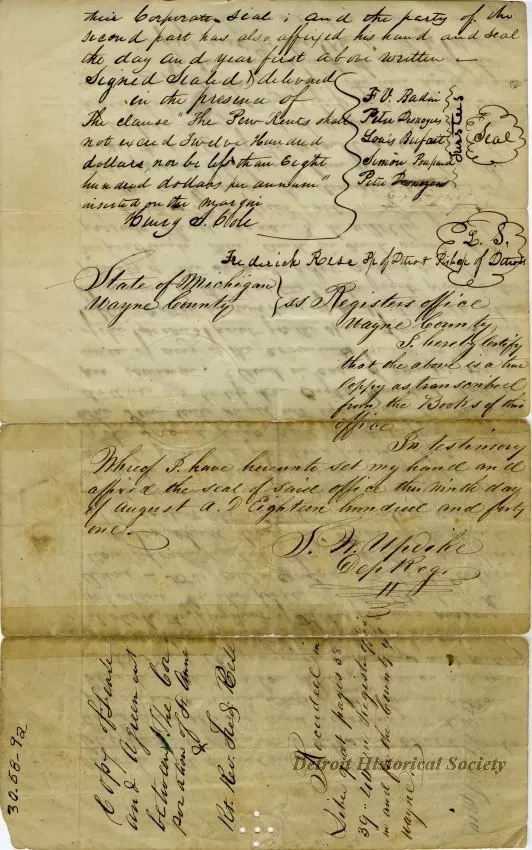 their Corporate Seal; and the party of the
second part has also affixed his hand and seal
the day and year first above written –
Signed Sealed & delivered
in the presence of
The clause "The Pew Rents shall
not exceed Twelve Hundred
dollars, nor be less than Eight
hundred dollars per annum"
inserted on the margin
Henry S. Cole
F V. Badin
Peter Desnoyers
Louis
Simon
Peter Desnoyers
Trustees
Seal
Frederick Rese Bp of Detroit
L. S.
Bishop of Detroit
State of Michigan
Wayne County
ss Registers office
Wayne County
I hereby Certify
that the above is a true
Coppy as transcribed
from the Books of this
office
In testimony
Whreof I have hereunto set my hand and
affixed the seal of said office this ninth day
of August A. D Eighteen hundred and forty
one.
Dep Reg.
Copy of Lease
and Agreement
between The Cor-
poration of St. Anne
&
Rt. Rev. Fred. Rese
Recorded in
Liber 9 at pages 38
39 & 40 in Registers office
in and for the County of
Wayne
30.58-92
Detroit Historical Society